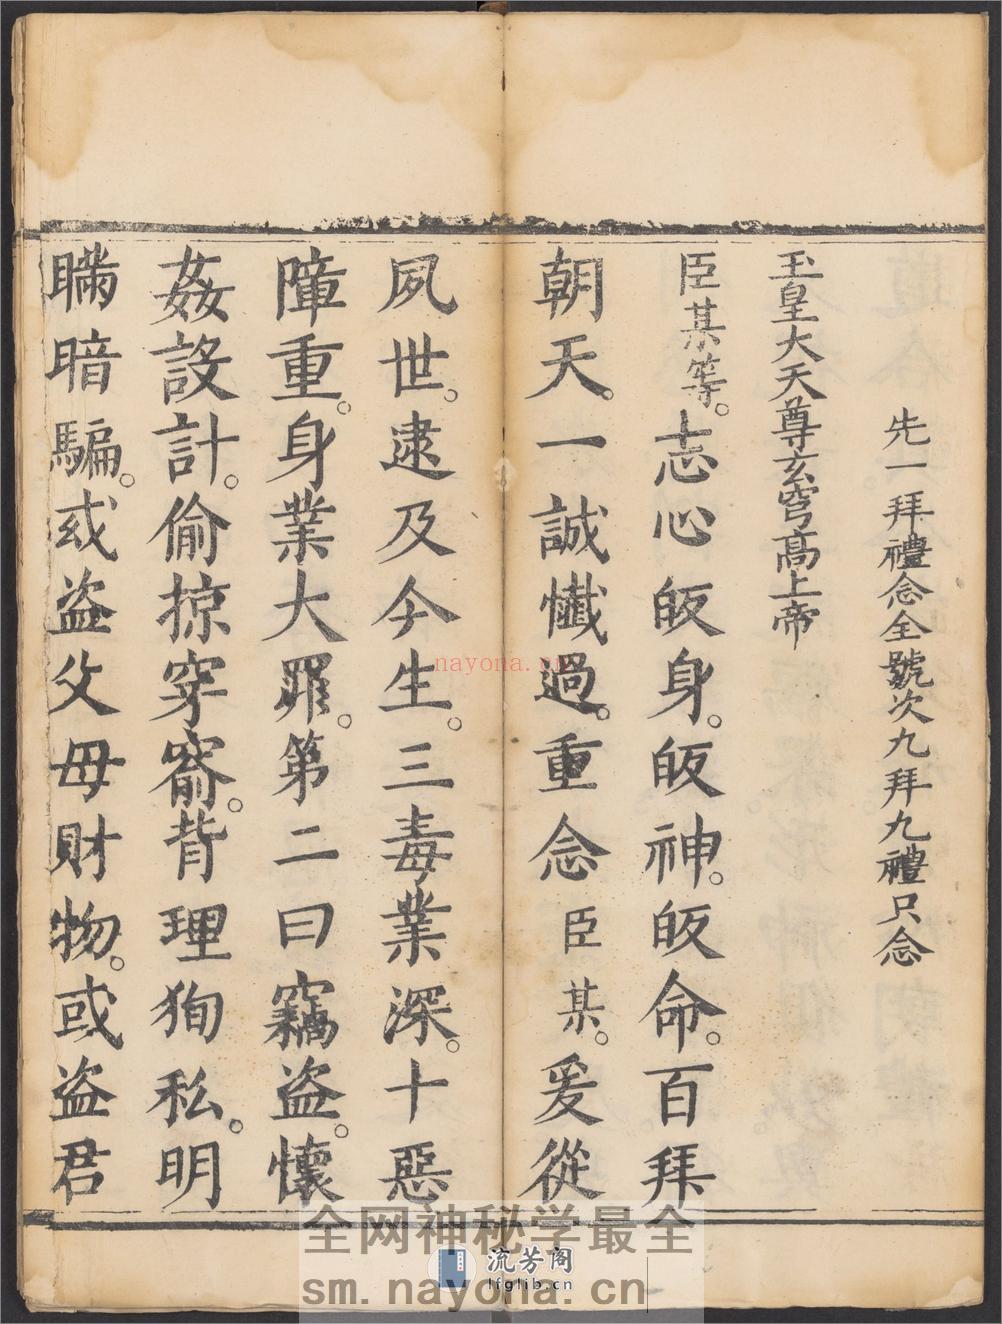 先一拜禮念全號次九拜九禮只念
玉皇大天尊玄穹高上帝
臣某等。志心皈身。皈神。皈命。百拜
朝天。一誠懺過。重念臣某。爰從
夙世。逮及今生。三毒業深。十惡
障重。身業大罪。第二曰竊盜。懷
姦設計。偷掠穿窬。背理狥私。明
瞞暗騙。或盜父母財物。或盜君
nayona.cn
全网神秘学最全
流芳阁
lfglib.cn
sm.nayona.cn